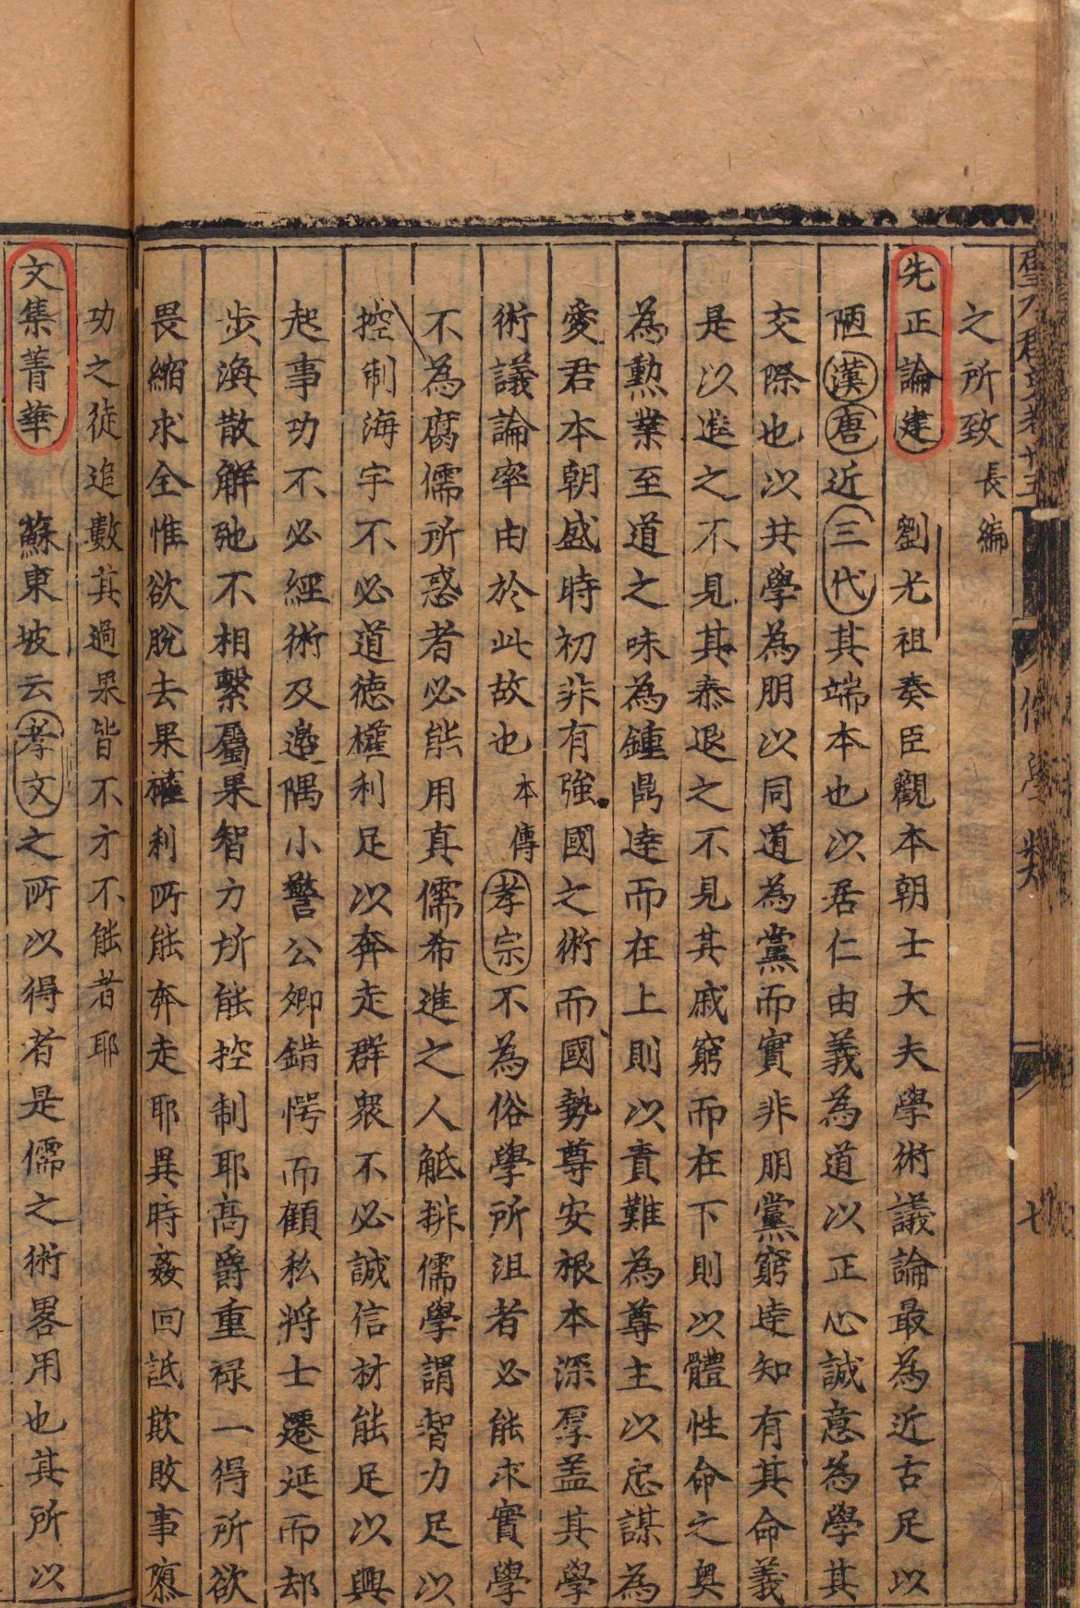 之所致長編
先正論建 劉光祖奏臣觀本朝士大夫學術議論最為近古足以
陋漢唐近三代其端本也以居仁由義為道以正心誠意為學其
交際也以共學為朋以同道為黨而實非朋黨窮達知有其命義
是以進之不見其泰退之不見其戚窮而在下則以體性命之奧
為勲業至道之味為鍾鼎達而在上則以責難為尊主以忠謀為
愛君本朝盛時初非有強國之術而國勢尊安根本深厚盖其學
術議論率由於此故也本傳孝宗不為俗學所沮者必能求實學
不為腐儒所惑者必能用真儒希進之人觝排儒學謂智力足以
控制海宇不必道德權利足以奔走群衆不必誠信材能足以興
起事功不必經術及邊隅小警公卿錯愕而顧私將士遷延而却
步渙散解弛不相繫屬果智力所能控制耶高爵重禄一得所欲
畏縮求全惟欲脫去果權利所能奔走耶異時姦回詆欺敗事隳
功之徒追數其過果皆不才不能者耶
文集菁華 蘇東坡云孝文之所以得者是儒之術畧用也其所以
儒學類
七